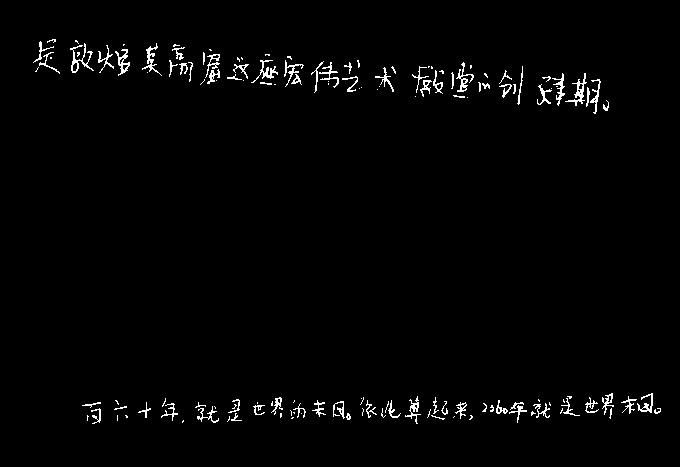 是敦煌莫高窟这座宏伟艺术殿堂的创建期。
百六十年,就是世界的末日。依此算起来,2060年就是世界末日。